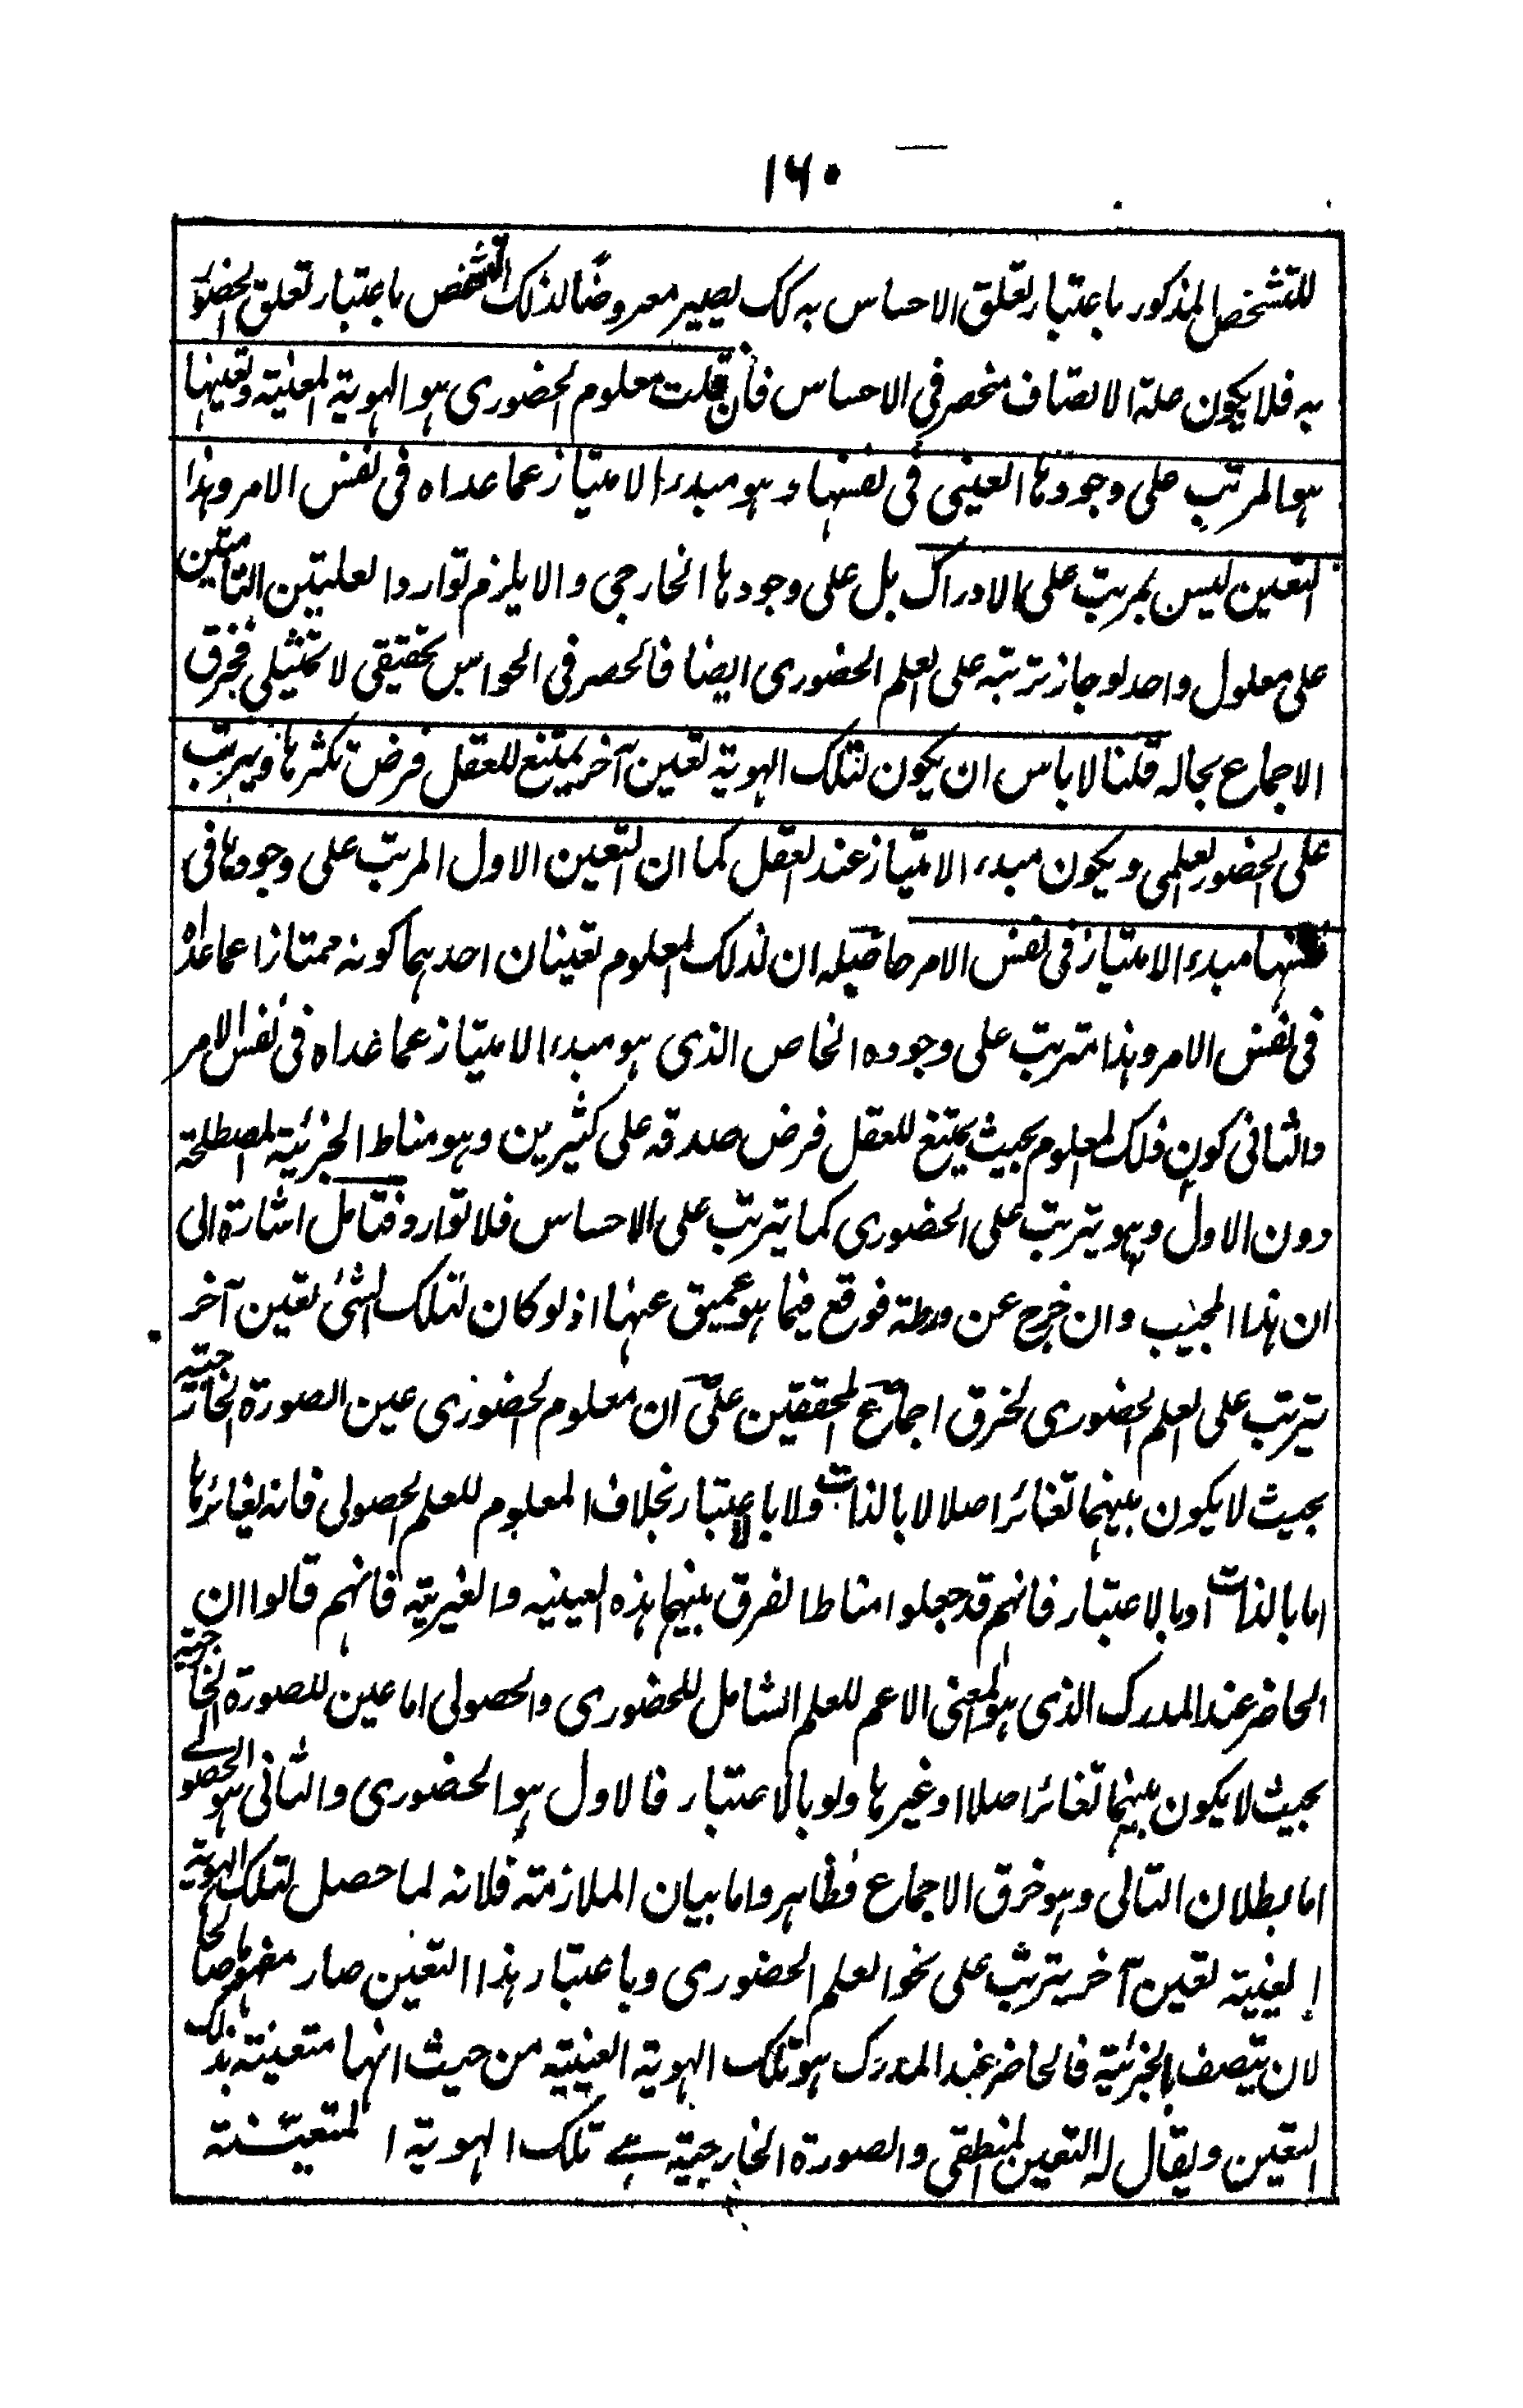 ١٦٠
للتشخص المذكور باعتبار تعلق الاحساس به كك يصير معروضا لذلك التشخص باعتبار تعلق الحضوري
به فلا يكون صلة الاتصاف منحصر في الاحساس فان قلت معلوم الحضوري هو الهوية العينية وتعينها
هو المرتب على وجودها العيني في نفسها وهو مبدء الامتياز عما عداه في نفس الامر وهذا
التعين ليس بمرتب على الادراك بل على وجودها الخارجي والا يلزم توارد العلتين التامتين
على معلول واحد لو جاز ترتبه على العلم الحضوري ايضا فالحصر في الحواس تحقيقي لا تمثيلي فخرق
الاجماع بحاله قلنا لا باس ان يكون لتلك الهوية تعين آخر يمتنع للعقل فرض تكثرها ويترتب
على الحضور العلمي ويكون مبدء الامتياز عند العقل كما ان التعين الاول المرتب على وجودها في
نفسها مبدء الامتياز في نفس الامر حاصله ان لذلك المعلوم تعينان احدهما كونه ممتازا عما عداه
في نفس الامر وهذا مترتب على وجوده الخاص الذي هو مبدء الامتياز عما عداه في نفس الامر
والثاني كون ذلك المعلوم بحيث يمتنع للعقل فرض صدقه على كثيرين وهو مناط الجزئية المصطلحة
دون الاول وهو يترتب على الحضوري كما يترتب على الاحساس فلا توارد فتامل اشارة الى
ان هذا المجيب وان خرج عن ورطة فوقع فيما هو عميق عنها اذ لو كان لتلك الشئ تعين آخر
يترتب على العلم الحضوري لخرق اجماع المحققين على ان معلوم الحضوري عين الصورة الخارجية
بحيث لا يكون بينهما تغائر اصلا لا بالذات ولا بالاعتبار بخلاف المعلوم للعلم الحصولي فانه يغائرها
اما بالذات او بالاعتبار فانهم قد جعلوا مناط الفرق بينهما هذه العينيه والغيرية فانهم قالوا ان
الحاضر عند المدرك الذي هو المعنى الاعم للعلم الشامل للحضوري والحصولي اما عين للصورة الخارجية
بحيث لا يكون بينهما تغائر اصلا او غيرها ولو بالاعتبار فالاول هو الحضوري والثاني هو الحصولي
اما بطلان التالي وهو خرق الاجماع فظاهر واما بيان الملازمته فلانه لما حصل لتلك الهوية
العينية تعين آخر يترتب على نحو العلم الحضوري وباعتبار هذا التعين صار مفهوما صالحا
لان يتصف بالجزئية فالحاضر عند المدرك هو تلك الهوية العينية من حيث انها متعينة بذلك
التعين ويقال له التعين المنطقي والصورة الخارجية هي تلك الهوية المتعينة